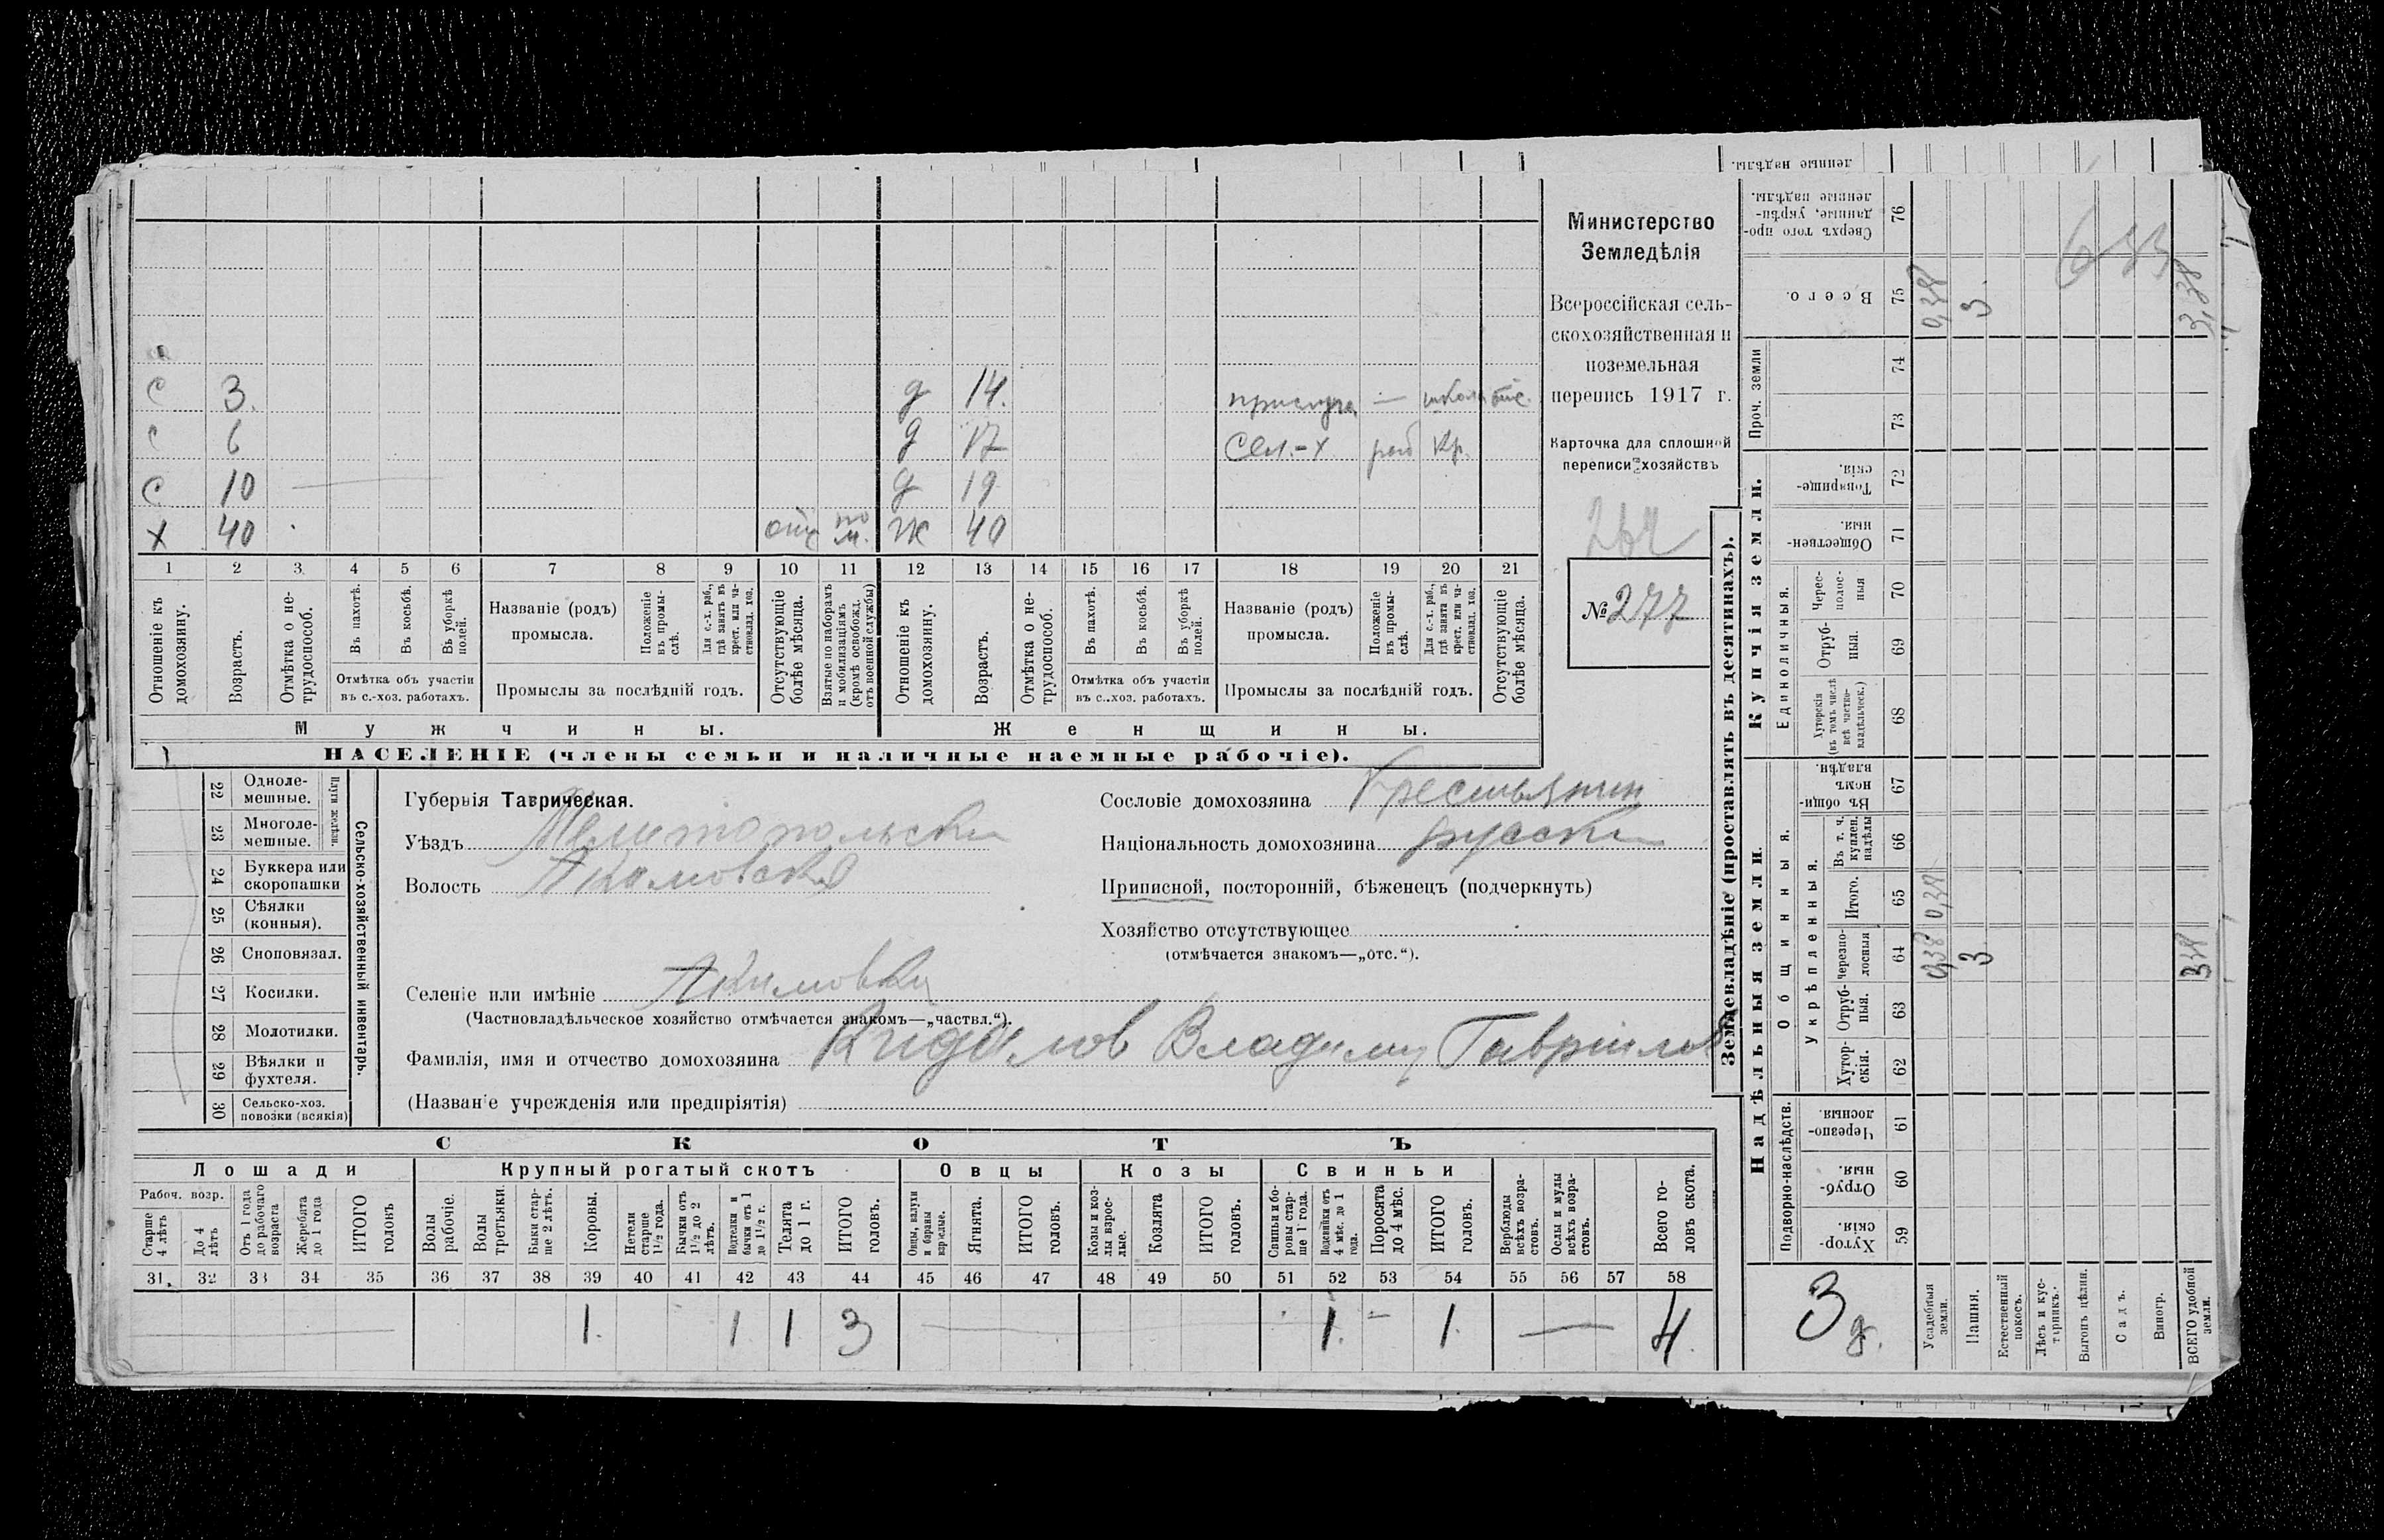 ленные надѣлы.
С 3. д 14. прислуга — отс.
С 6 д 17 Сел.-х раб Кр.
С 10 д 19
Х 40 отс по м. Ж 40
1 2 3 4 5 6 7 8 9 10 11 12 13 14 15 16 17 18 19 20 21
Отношеніе къ домохозяину.
Возрастъ.
Отмѣтка о не-трудоспособ.
Въ пахотѣ.
Въ косьбѣ.
Въ уборкѣ полей.
Отмѣтка объ участіи
въ с.-хоз. работахъ.
Названіе (родъ)
промысла.
Положеніе въ промы-слѣ.
Для с.-х. раб., гдѣ занятъ въ крест. или ча-стновлад. хоз.
Промыслы за послѣдній годъ.
Отсутствующіе болѣе мѣсяца.
Взятые по наборамъ и мобилизаціямъ (кромѣ освобожд. отъ военной службы)
Отношеніе къ домохозяину.
Возрастъ.
Отмѣтка о не-трудоспособ.
Въ пахотѣ.
Въ косьбѣ.
Въ уборкѣ полей.
Отмѣтка объ участіи
въ с..хоз. работахъ.
Названіе (родъ)
промысла.
Положеніе въ промы-слѣ.
Для с.-х. раб., гдѣ занята въ крест. или ча-стновлад. хоз.
Промыслы за послѣдній годъ.
Отсутствующіе болѣе мѣсяца.
Мужчины. Женщины.
НАСЕЛЕНІЕ (члены семьи и наличные наемные рабочіе).
Министерство
Земледѣлія
Всероссійская сель-
скохозяйственная и
поземельная
перепись 1917 г.
Карточка для сплошной
переписи хозяйствъ
№ 277
22 Одноле-мешные.
23 Многоле-мешные.
Плуги желѣзн.
24 Буккера или скоропашки
25 Сѣялки (конныя).
26 Сноповязал.
27 Косилки.
28 Молотилки.
29 Вѣялки и фухтеля.
30 Сельско-хоз. повозки (всякія)
Сельско-хозяйственный инвентарь.
Губернія Таврическая.
Уѣздъ Мелитопольски
Волость Акимовска
Селеніе или имѣніе Акимовка
(Частновладѣльческое хозяйство отмѣчается знакомъ—„частвл.“).
Фамилія, имя и отчество домохозяина Владимир Гаврилов
(Названіе учрежденія или предпріятія)
Сословіе домохозяина Крестьянин
Національность домохозяина русски
Приписной, посторонній, бѣженецъ (подчеркнуть)
Хозяйство отсутствующее
(отмѣчается знакомъ—„отс.“).
СКОТЪ
Лошади Крупный рогатый скотъ Овцы Козы Свиньи
Рабоч. возр.
Старше 4 лѣтъ
До 4 лѣтъ
Отъ 1 года до рабочаго возраста
Жеребята до 1 года
ИТОГО головъ
Волы рабочіе.
Волы третьяки.
Быки стар-ше 2 лѣтъ.
Коровы.
Нетели старше 1½ года.
Бычки отъ 1½ до 2 лѣтъ.
Подтелки и бычки отъ 1 до 1½ г.
Телята до 1 г.
ИТОГО головъ.
Овцы, валухи и бараны взрослые.
Ягнята.
ИТОГО головъ.
Козы и коз-лы взрос-лые.
Козлята
ИТОГО головъ.
Свиньи и бо-ровы стар-ше 1 года.
Подсвинки отъ 4 мѣс. до 1 года.
Поросята до 4 мѣс.
ИТОГО головъ.
Верблюды всѣхъ возра-стовъ.
Ослы и мулы всѣхъ возра-стовъ.
Всего го-ловъ скота.
31 32 33 34 35 36 37 38 39 40 41 42 43 44 45 46 47 48 49 50 51 52 53 54 55 56 57 58
1. 1 1 3 1. — 1. — 4.
Землевладѣніе (проставлять въ десятинахъ).
Надѣльныя земли. Купчія земли.
Подворно-наслѣдств. Общинныя. Укрѣпленныя. Единоличныя. Проч. земли
59 Хутор-скія.
60 Отруб-ныя.
61 Черезпо-лосныя.
62 Хутор-скія.
63 Отруб-ныя.
64 черезпо-лосныя
65 Итого.
66 Въ т. ч. куплен. надѣлы
67 Въ общи-номъ владѣн.
68 Хуторскія (въ томъ числѣ всѣ частно-владѣльческ.)
69 Отруб-ныя.
70 Черес-полос-ныя
71 Обществен-ныя.
72 Товарище-скія.
73
74
75 Всего.
76 Сверхъ того про-данные, укрѣп-ленные надѣлы.
3 д.
Усадебныя земли. 0,38 0,38 0,38
Пашня. 3 3.
Естественный покосъ.
Лѣсъ и кус-тарникъ.
Выгонъ цѣлин.
Садъ.
Виногр.
ВСЕГО удобной земли. 3,38 3,38